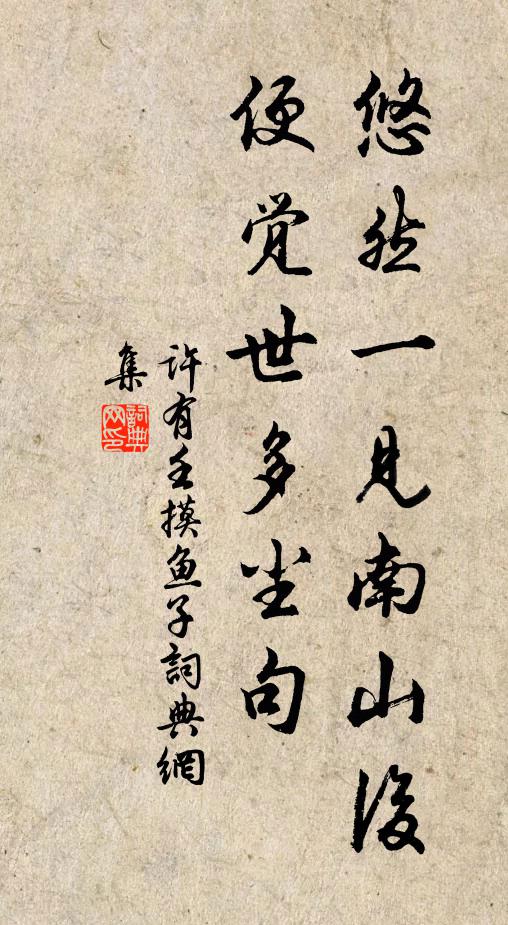 悠然一见南山后
便觉世多尘句
许有壬摸鱼子詞典網
集
詞典网印